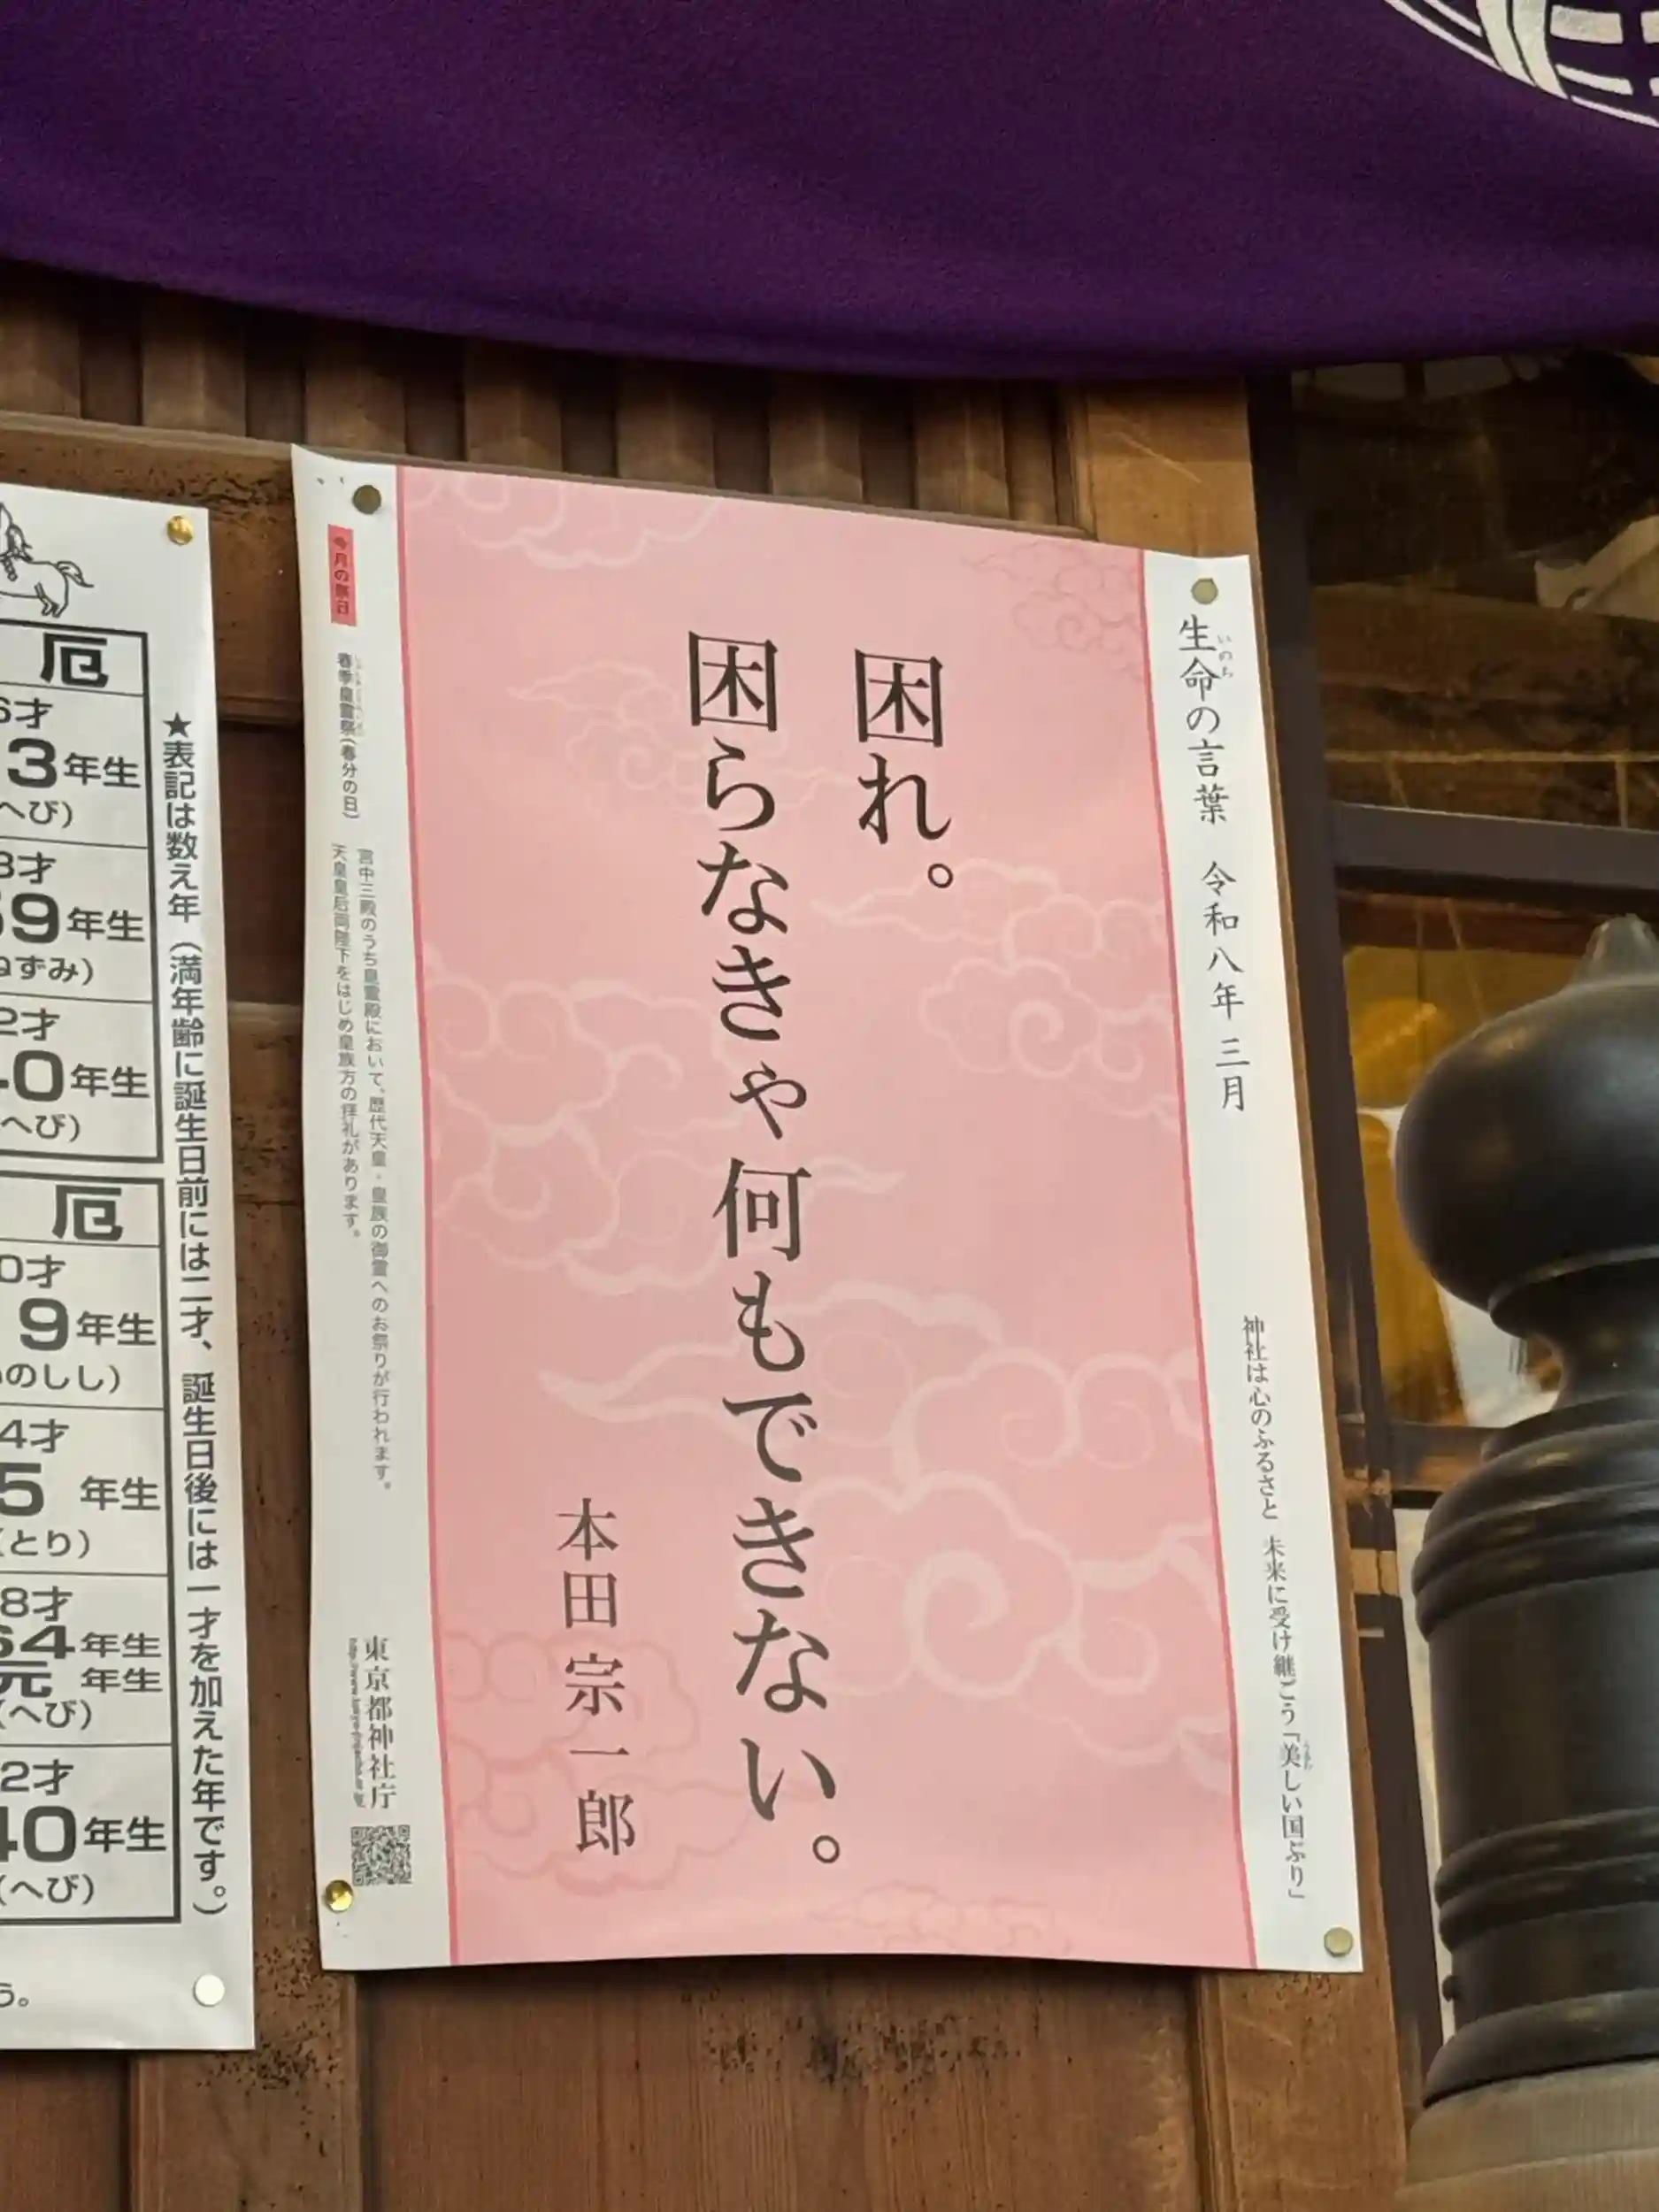 生命の言葉 令和八年 三月
いのち
神社は心のふるさと 未来に受け継ごう「美しい国ぶり」
困れ。
困らなきゃ何もできない。
本田宗一郎
今月の祭日
春季皇霊祭(春分の日)
宮中三殿のうち皇霊殿において、歴代天皇・皇族の御霊へのお祭りが行われます。
天皇皇后両陛下をはじめ皇族方の拝礼があります。
東京都神社庁
★表記は数え年(満年齢に誕生日前には二才、誕生日後には一才を加えた年です。)
厄
6才
3年生
へび)
8才
59年生
ねずみ)
2才
40年生
へび)
厄
0才
9年生
いのしし)
4才
5年生
(とり)
8才
64年生
元年生
(へび)
2才
40年生
(へび)
う。